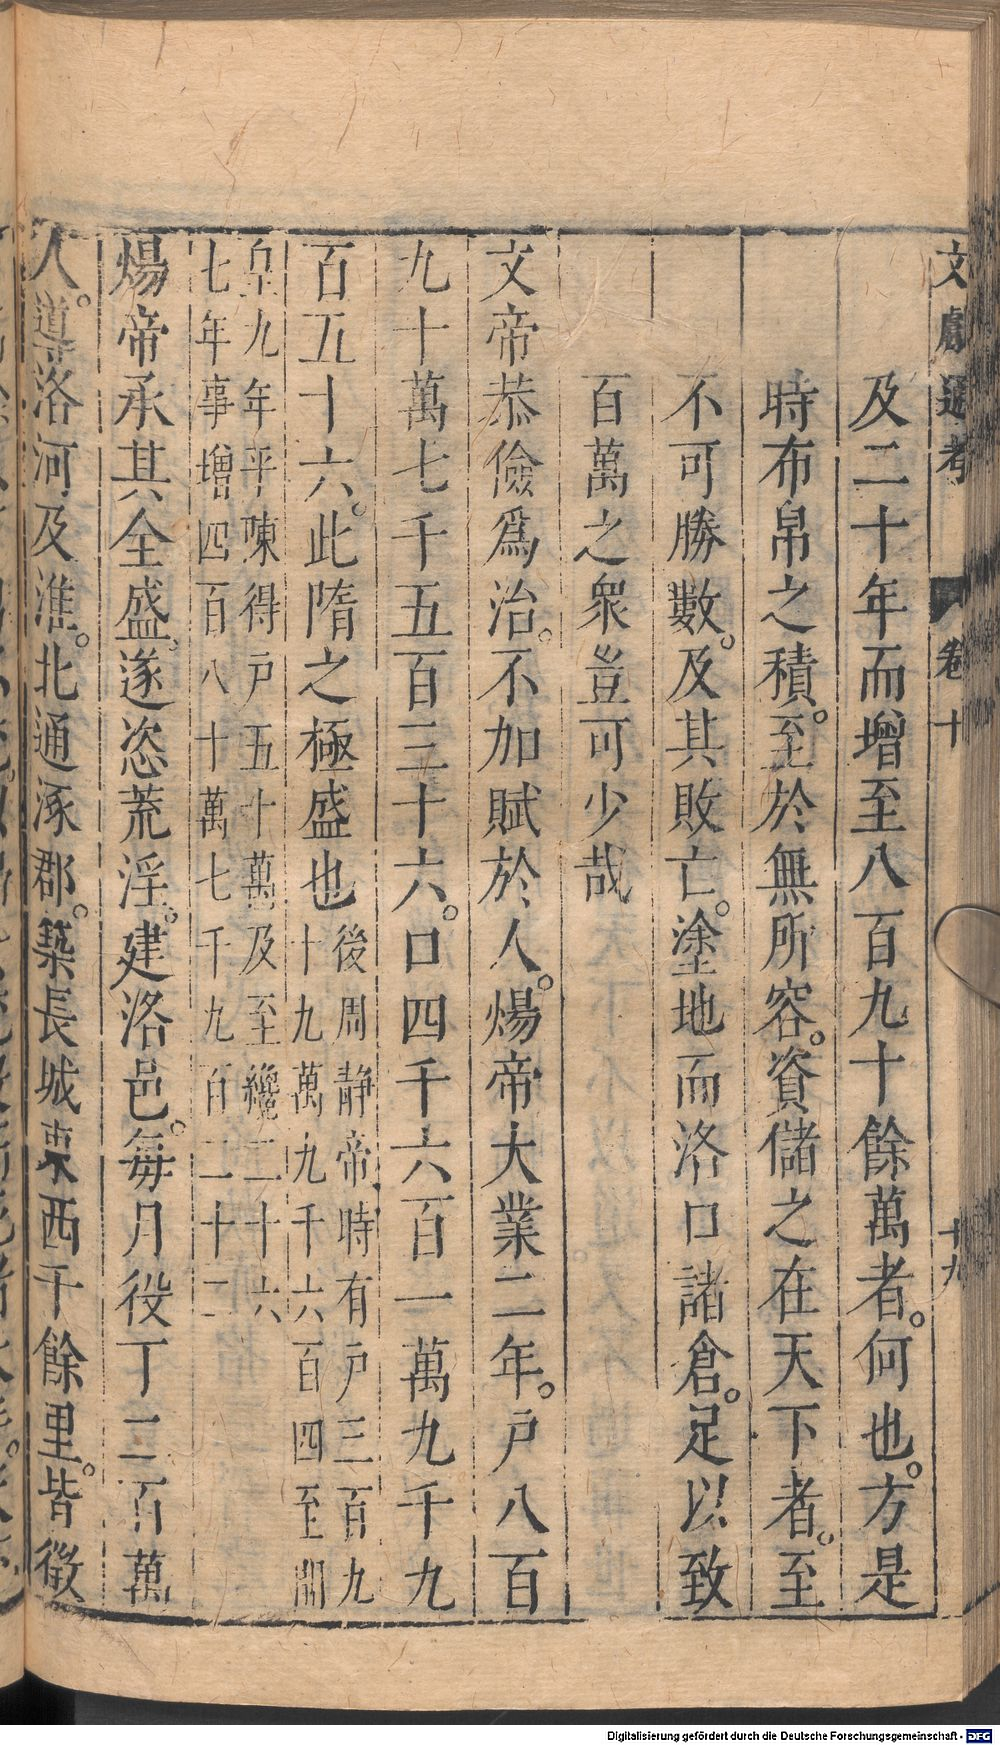 文獻通考 卷十 十九
及二十年而增至八百九十餘萬者。何也。方是
時布帛之積。至於無所容。資儲之在天下者。至
不可勝數。及其敗亡。塗地而洛口諸倉。足以致
百萬之衆豈可少哉
文帝恭儉爲治。不加賦於人。煬帝大業二年。戸八百
九十萬七千五百三十六。口四千六百一萬九千九
百五十六。此隋之極盛也
後周静帝時有戸三百九
十九萬九千六百四至開
皇九年平陳得戸五十萬及至纔二十六
七年事增四百八十萬七千九百二十二
煬帝承其全盛。遂恣荒淫。建洛邑。每月役丁二百萬
人。導洛河及淮。北通涿郡。築長城東西千餘里。皆徵
Digitalisierung gefördert durch die Deutsche Forschungsgemeinschaft - DFG